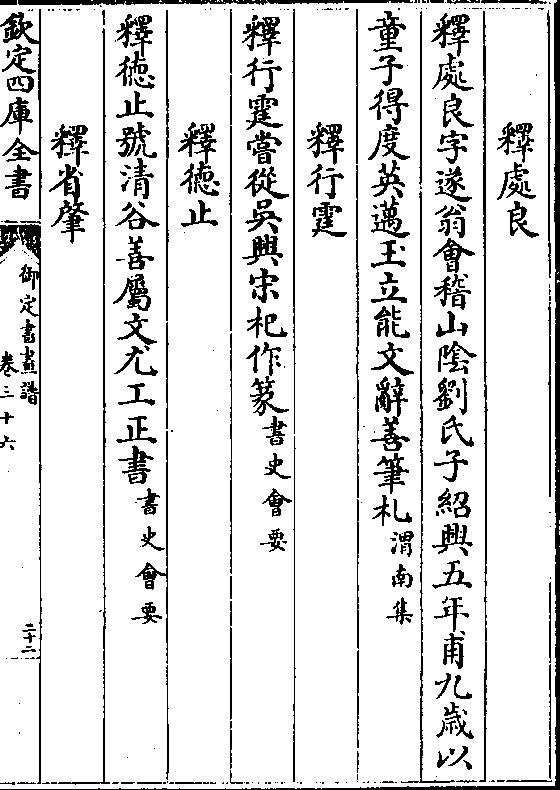 釋處良
釋處良字遂翁會稽山陰劉氏子紹興五年甫九歲以
童子得度英邁玉立能文辭善筆札渭南集
釋行霆
釋行霆嘗從吳興宋杞作篆書史會要
釋德止
釋德止號清谷善屬文尤工正書書史會要
釋省肇
欽定四庫全書
御定書畫譜
卷三十六
二十二